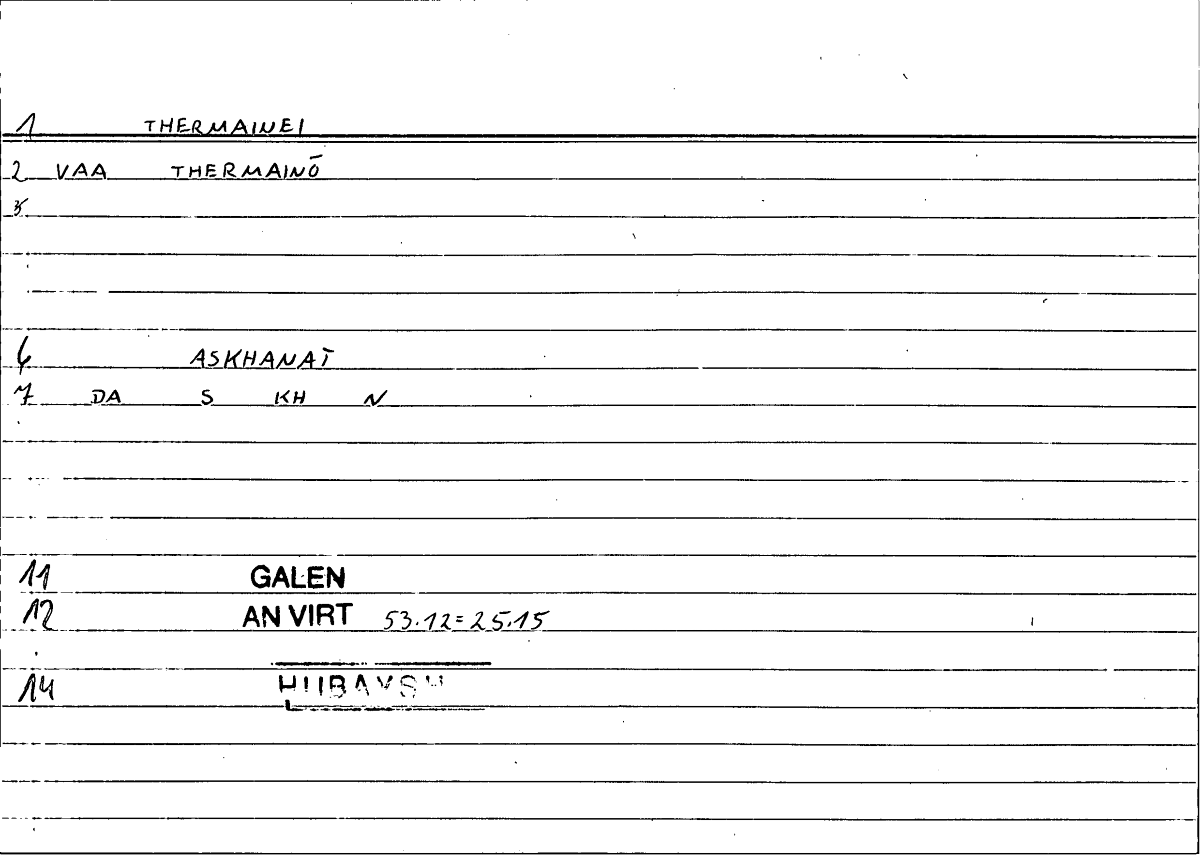 1 THERMAINEI
2 VAA THERMAINŌ
3
6 ASKHANAT
7 DA S KH N
11 GALEN
12 AN VIRT 53.12=25.15
14 HUBAYSH